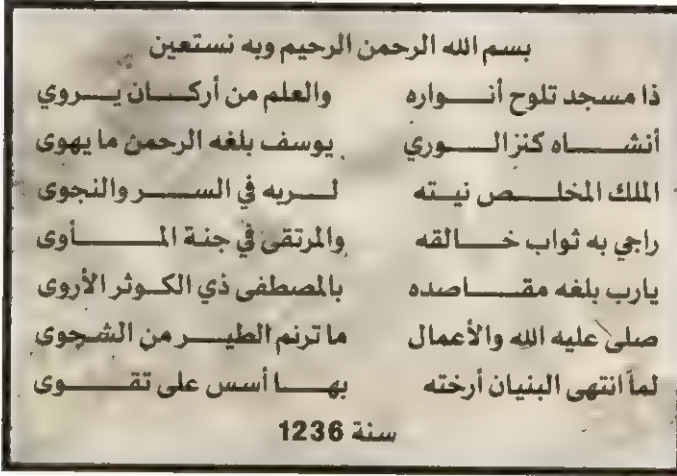 بسم الله الرحمن الرحيم وبه نستعين
ذا مسجد تلوح أنـــواره والعلم من أركـــان يـــروي
أنشـــاه كنز الـــوري يوسف بلغه الرحمن ما يهوى
الملك المخلـــص نيـته لـــربه في الســـر والنجوى
راجي به ثواب خـــالقه والمرتقى في جنة المـــأوى
يارب بلغه مقـــاصده بالمصطفى ذي الكـوثر الأروى
صلى عليه الله والأعمال ما ترنم الطيـــر من الشجوى
لما انتهى البنيان أرخته بهـــا أسس على تقـــوى
سنة 1236